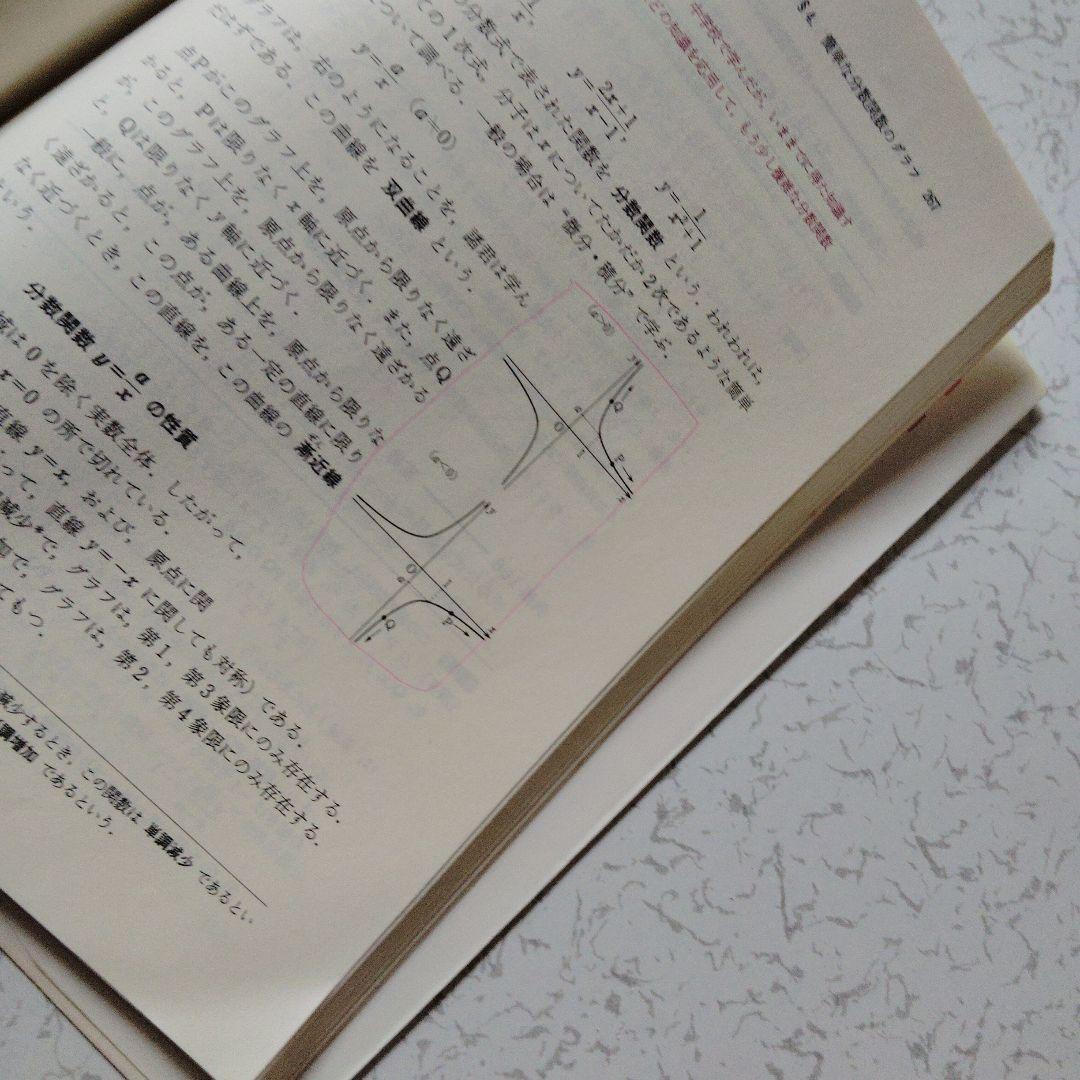 §4. 簡単な分数関数のグラフ 267
中学校で学んだが，いままでに得た知識す
どの知識を応用して，もう少し複雑な分数関数
y=2x+1/x-1, y=1/x²+1
の分数式で表された関数を 分数関数 という．われわれは，
ての1次式，分子はxについてたかだか2次であるような簡単
ついて調べる．一般の場合は“微分・積分”で学ぶ．
y=a/x (a≠0)
グラフは，右のようになることを，諸君は学ん
だはずである．この曲線を 双曲線 という．
点Pがこのグラフ上を，原点から限りなく遠ざ
かると，Pは限りなくx軸に近づく．また，点Q
が，このグラフ上を，原点から限りなく遠ざかる
と，Qは限りなくy軸に近づく．
一般に，点が，ある曲線上を，原点から限りな
く遠ざかると，この点が，ある一定の直線に限り
なく近づくとき，この直線を，この曲線の 漸近線
いう．
(a>0)
y
Q
a
O
1
P
x
(a<0)
y
O
1
a
Q
P
x
分数関数 y=a/x の性質
域は0を除く実数全体．したがって，
x=0の所で切れている．
直線 y=x，および，原点に関
って，直線 y=-x に関しても対称）である．
減少*で，グラフは，第1，第3象限にのみ存在する．
加で，グラフは，第2，第4象限にのみ存在する．
てもつ．
減少するとき，この関数は 単調減少 であるとい
調増加 であるという．